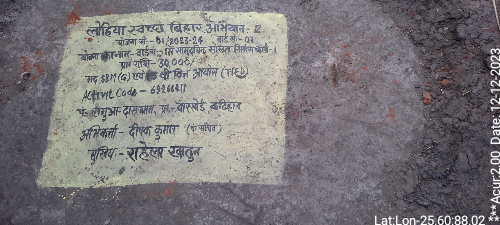 लोहिया स्वच्छ बिहार अभियान - 2
योजना सं०- 01/2023-24 वार्ड सं०- 07
योजना का नाम- वार्ड सं० में सामुदायिक सोख्ता निर्माण कार्य
प्रा० राशि- 30,000/-
मद SBM (G) एवं 15 वी वित्त आयोग (TIED)
Activit Code - 69266211
दासग्राम, प्र०- बारसोई कटिहार
अभिकर्ता - दीपक कुमार (पं० सचिव)
मुखिया - राहेला खातुन
Lat:Lon-25:60:88.02
***Acur:2.00 Date: 12-12-2023